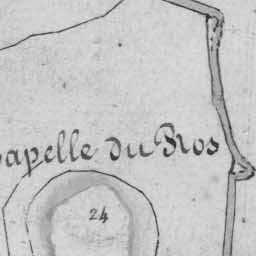 apelle du Bros
24